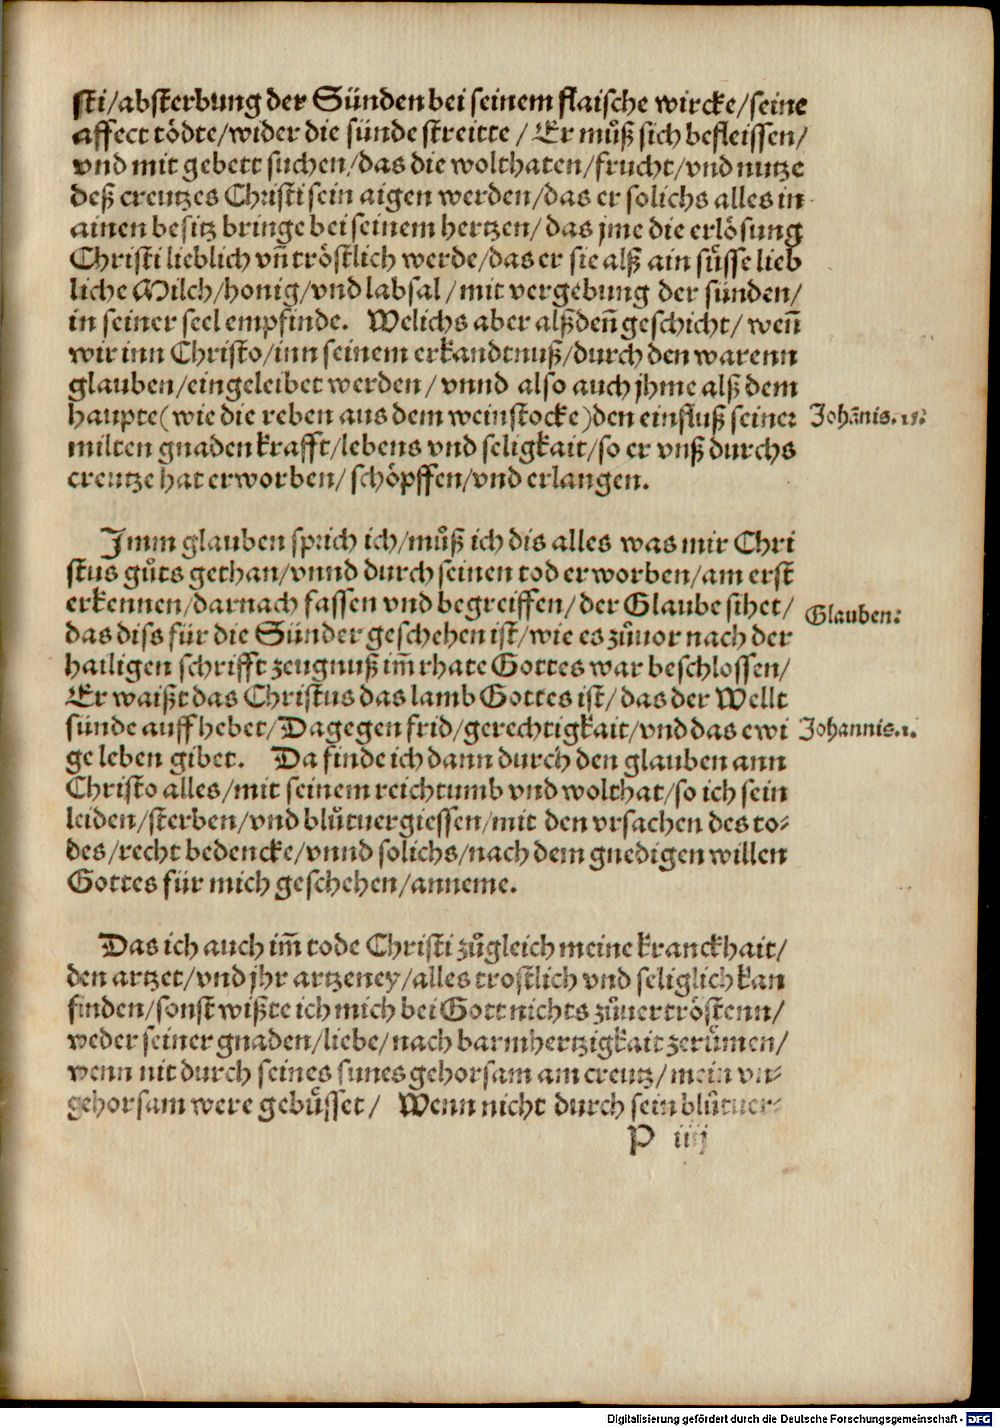 sti/absterbung der Sünden bei seinem flaische wircke/seine
affect tödte/wider die sünde streitte / Er muͦß sich befleissen/
vnd mit gebett suchen/das die wolthaten/frucht/vnd nutze
deß creutzes Christi sein aigen werden/das er solichs alles in
ainen besitz bringe bei seinem hertzen/ das jme die erlösung
Christi lieblich vn̄ tröstlich werde/das er sie alß ain suͤsse lieb
liche Milch/honig/vnd labsal / mit vergebung der sünden/
in seiner seel empfinde. Welichs aber alßden̄ geschicht/ wen̄
wir inn Christo/inn seinem erkandtnuß/durch den warenn
glauben/eingeleibet werden/ vnnd also auch jhme alß dem
haupte (wie die reben aus dem weinstocke) den einfluß seiner
Johān̄is. 15.
milten gnaden krafft/lebens vnd seligkait/so er vnß durchs
creutze hat erworben/ schöpffen/vnd erlangen.
Imm glauben sprich ich/muͦß ich dis alles was mir Chri
stus guͦts gethan/vnnd durch seinen tod erworben/am erst
erkennen/darnach fassen vnd begreiffen/ der Glaube sihet/
Glauben:
das diss für die Sünder geschehen ist/wie es zuͦuor nach der
hailigen schrifft zeugnuß im̄ rhate Gottes war beschlossen/
Er waißt das Christus das lamb Gottes ist/ das der Wellt
sünde auffhebet/Dagegen frid/gerechtigkait/vnd das ewi
Johannis. 1.
ge leben gibet. Da finde ich dann durch den glauben ann
Christo alles/mit seinem reichtumb vnd wolthat/so ich sein
leiden/sterben/vnd bluͦtuergiessen/mit den vrsachen des to-
des/recht bedencke/vnnd solichs/nach dem gnedigen willen
Gottes für mich geschehen/anneme.
Das ich auch im̄ tode Christi zuͦgleich meine kranckhait/
den artzet/vnd jhr artzeney/alles trostlich vnd seliglich kan
finden/sonst wißte ich mich bei Gott nichts zuͦuertröstenn/
weder seiner gnaden/liebe/nach barmhertzigkait zeruͤmen/
wenn nit durch seines sunes gehorsam am creutz/mein vn-
gehorsam were gebuͤsset/ Wenn nicht durch sein bluͦtuer-
P iiij
Digitalisierung gefördert durch die Deutsche Forschungsgemeinschaft - DFG